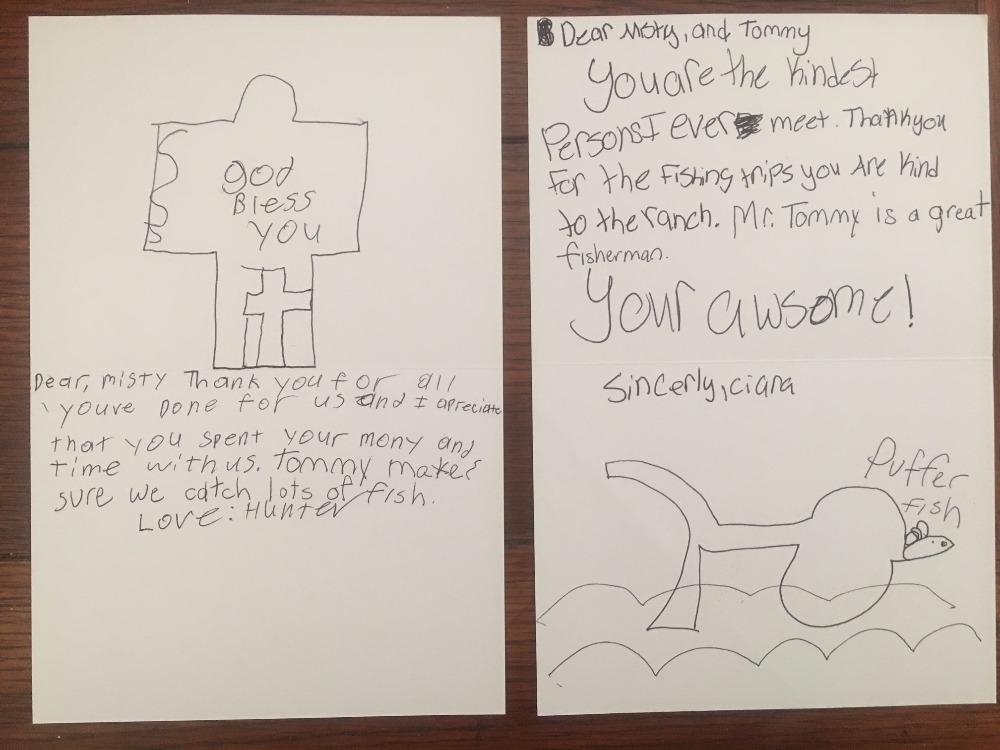 God
Bless
You
Dear, misty Thank you for all
youve Done for us and I apreciate
that you spent your mony and
time with us. Tommy makes
sure we catch lots of fish.
Love: Hunter
Dear Misty, and Tommy
You are the kindest
Persons I ever meet. Thank you
For the Fishing trips you Are kind
to the ranch. Mr. Tommy is a great
fisherman.
Your awsome!
Sincerly, ciara
Puffer
fish